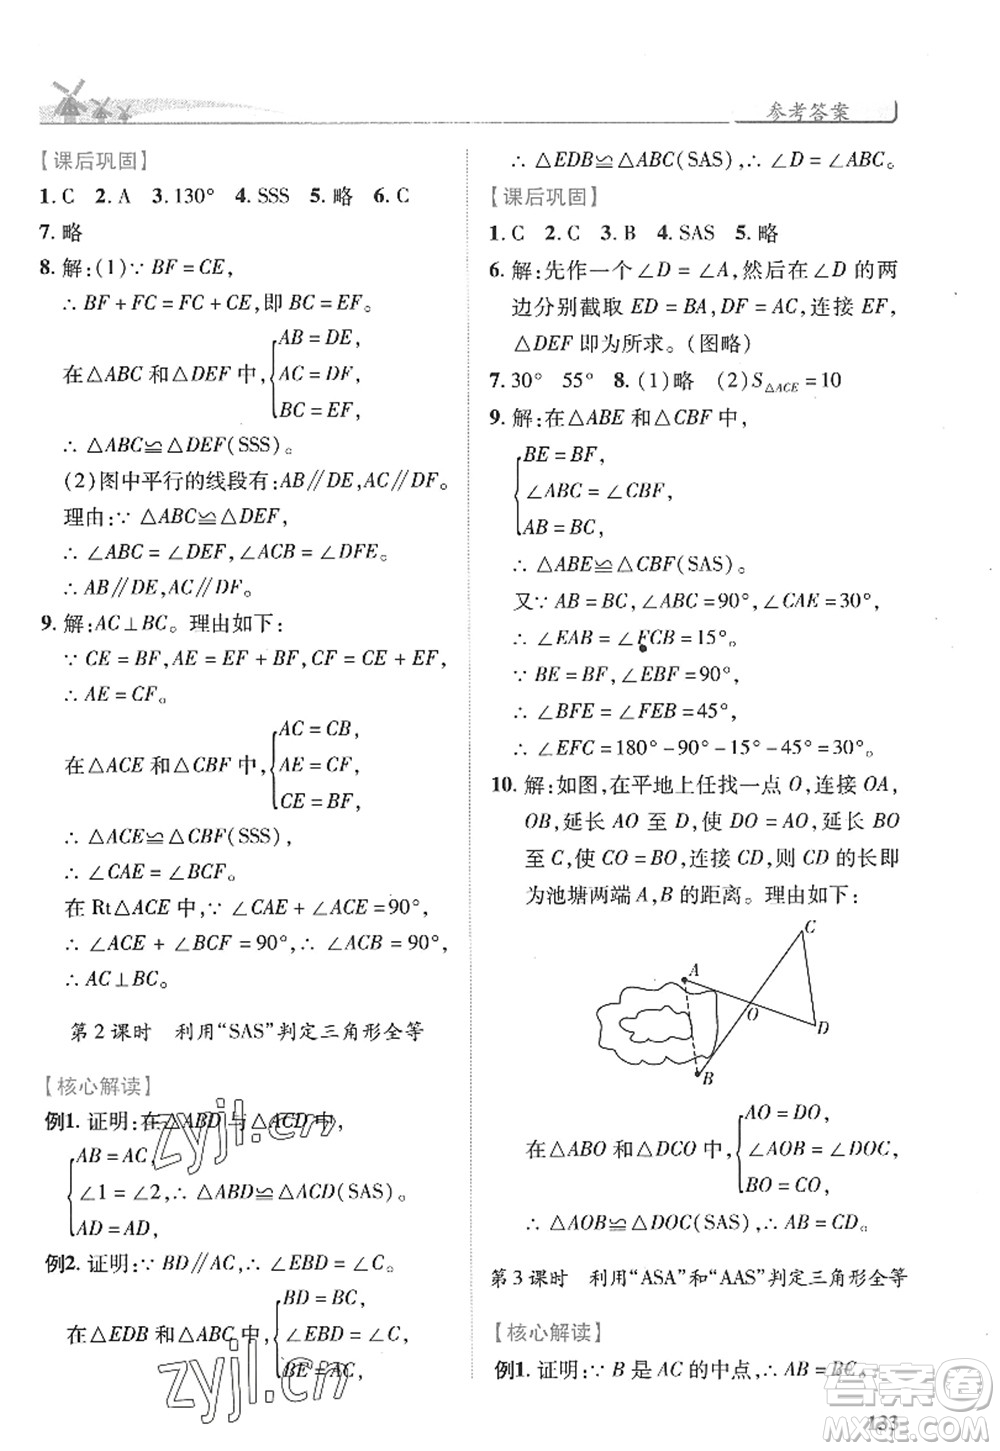 参考答案
【课后巩固】
1. C 2. A 3. 130° 4. SSS 5. 略 6. C
7. 略
8. 解:(1)∵ BF = CE,
∴ BF + FC = FC + CE,即 BC = EF。
在△ABC 和△DEF 中,
AB = DE,
AC = DF,
BC = EF,
∴ △ABC≌△DEF(SSS)。
(2)图中平行的线段有:AB∥DE,AC∥DF。
理由:∵ △ABC≌△DEF,
∴ ∠ABC = ∠DEF,∠ACB = ∠DFE。
∴ AB∥DE,AC∥DF。
9. 解:AC⊥BC。理由如下:
∵ CE = BF,AE = EF + BF,CF = EF + CE,
∴ AE = CF。
在△ACE 和△CBF 中,
AC = CB,
AE = CF,
CE = BF,
∴ △ACE≌△CBF(SSS),
∴ ∠CAE = ∠BCF。
在 Rt△ACE 中,∵ ∠CAE + ∠ACE = 90°,
∴ ∠ACE + ∠BCF = 90°,∴ ∠ACB = 90°,
∴ AC⊥BC。
第 2 课时 利用“SAS”判定三角形全等
【核心解读】
例1. 证明:在△ABD 与△ACD 中,
AB = AC,
∠1 = ∠2,∴ △ABD≌△ACD(SAS)。
AD = AD,
例2. 证明:∵ BD∥AC,∴ ∠EBD = ∠C。
在△EDB 和△ABC 中,
BD = BC,
∠EBD = ∠C,
BE = AC,
∴ △EDB≌△ABC(SAS),∴ ∠D = ∠ABC。
【课后巩固】
1. C 2. C 3. B 4. SAS 5. 略
6. 解:先作一个∠D = ∠A,然后在∠D 的两
边分别截取 ED = BA,DF = AC,连接 EF,
△DEF 即为所求。(图略)
7. 30° 55° 8. (1)略 (2)S△ACE = 10
9. 解:在△ABE 和△CBF 中,
BE = BF,
∠ABC = ∠CBF,
AB = BC,
∴ △ABE≌△CBF(SAS)。
又∵ AB = BC,∠ABC = 90°,∠CAE = 30°,
∴ ∠EAB = ∠FCB = 15°。
∵ BE = BF,∠EBF = 90°,
∴ ∠BFE = ∠FEB = 45°,
∴ ∠EFC = 180° - 90° - 15° - 45° = 30°。
10. 解:如图,在平地上任找一点 O,连接 OA,
OB,延长 AO 至 D,使 DO = AO,延长 BO
至 C,使 CO = BO,连接 CD,则 CD 的长即
为池塘两端 A,B 的距离。理由如下:
C
A
O
D
B
在△ABO 和△DCO 中,
AO = DO,
∠AOB = ∠DOC,
BO = CO,
∴ △AOB≌△DOC(SAS),∴ AB = CD。
第 3 课时 利用“ASA”和“AAS”判定三角形全等
【核心解读】
例1. 证明:∵ B 是 AC 的中点,∴ AB = BC。
133
zyjl.cn
zyjl.cn
答案圈
MXQE.COM